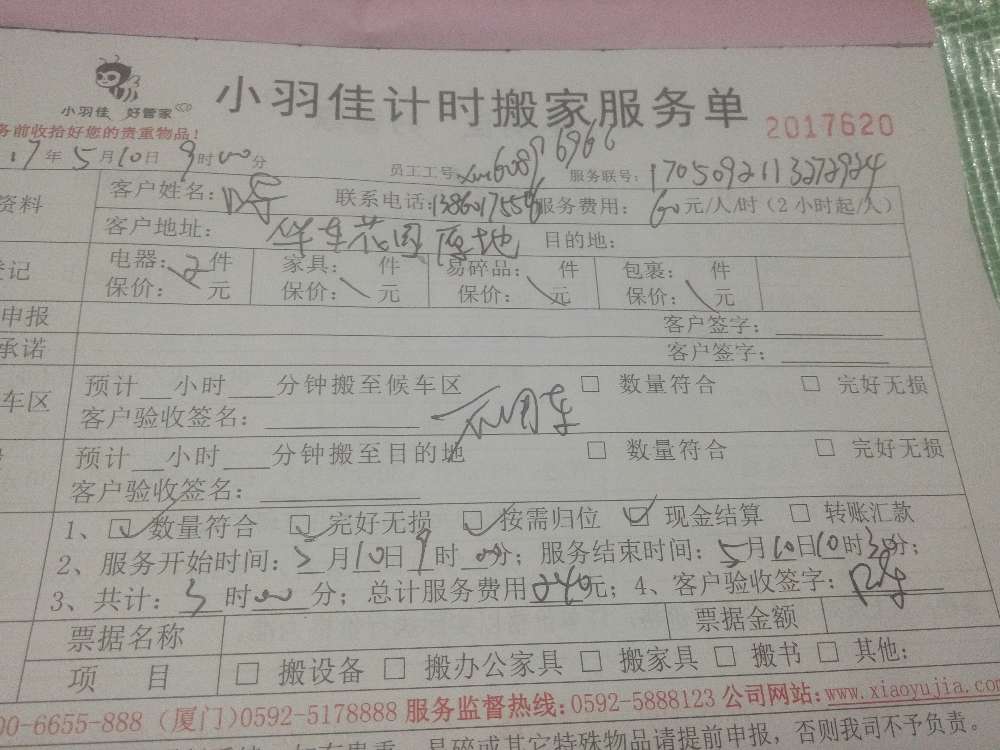 小羽佳 好管家
小羽佳计时搬家服务单
2017620
务前收拾好您的贵重物品!
17年5月10日9时00分
员工工号: 服务联号: 1705092113272924
资料 客户姓名: 联系电话: 服务费用: 60元/人/时(2小时起/人)
客户地址: 华车花园原地 目的地:
登记 电器: 2件 家具: 件 易碎品: 件 包裹: 件
保价: 元 保价: 元 保价: 元 保价: 元
申报 客户签字:
承诺 客户签字:
车区 预计 小时 分钟搬至候车区 □ 数量符合 □ 完好无损
客户验收签名: 不用车
预计 小时 分钟搬至目的地 □ 数量符合 □ 完好无损
客户验收签名:
1、☑数量符合 ☑完好无损 ☑按需归位 ☑现金结算 □ 转账汇款
2、服务开始时间: 5月10日9时00分; 服务结束时间: 5月10日10时30分;
3、共计: 3时00分; 总计服务费用240元; 4、客户验收签字:
票据名称 票据金额
项 目 □ 搬设备 □ 搬办公家具 □ 搬家具 □ 搬书 □ 其他:
00-6655-888 (厦门)0592-5178888 服务监督热线:0592-5888123 公司网站:www.xiaoyujia.com
易碎或其它特殊物品请提前申报,否则我司不予负责。